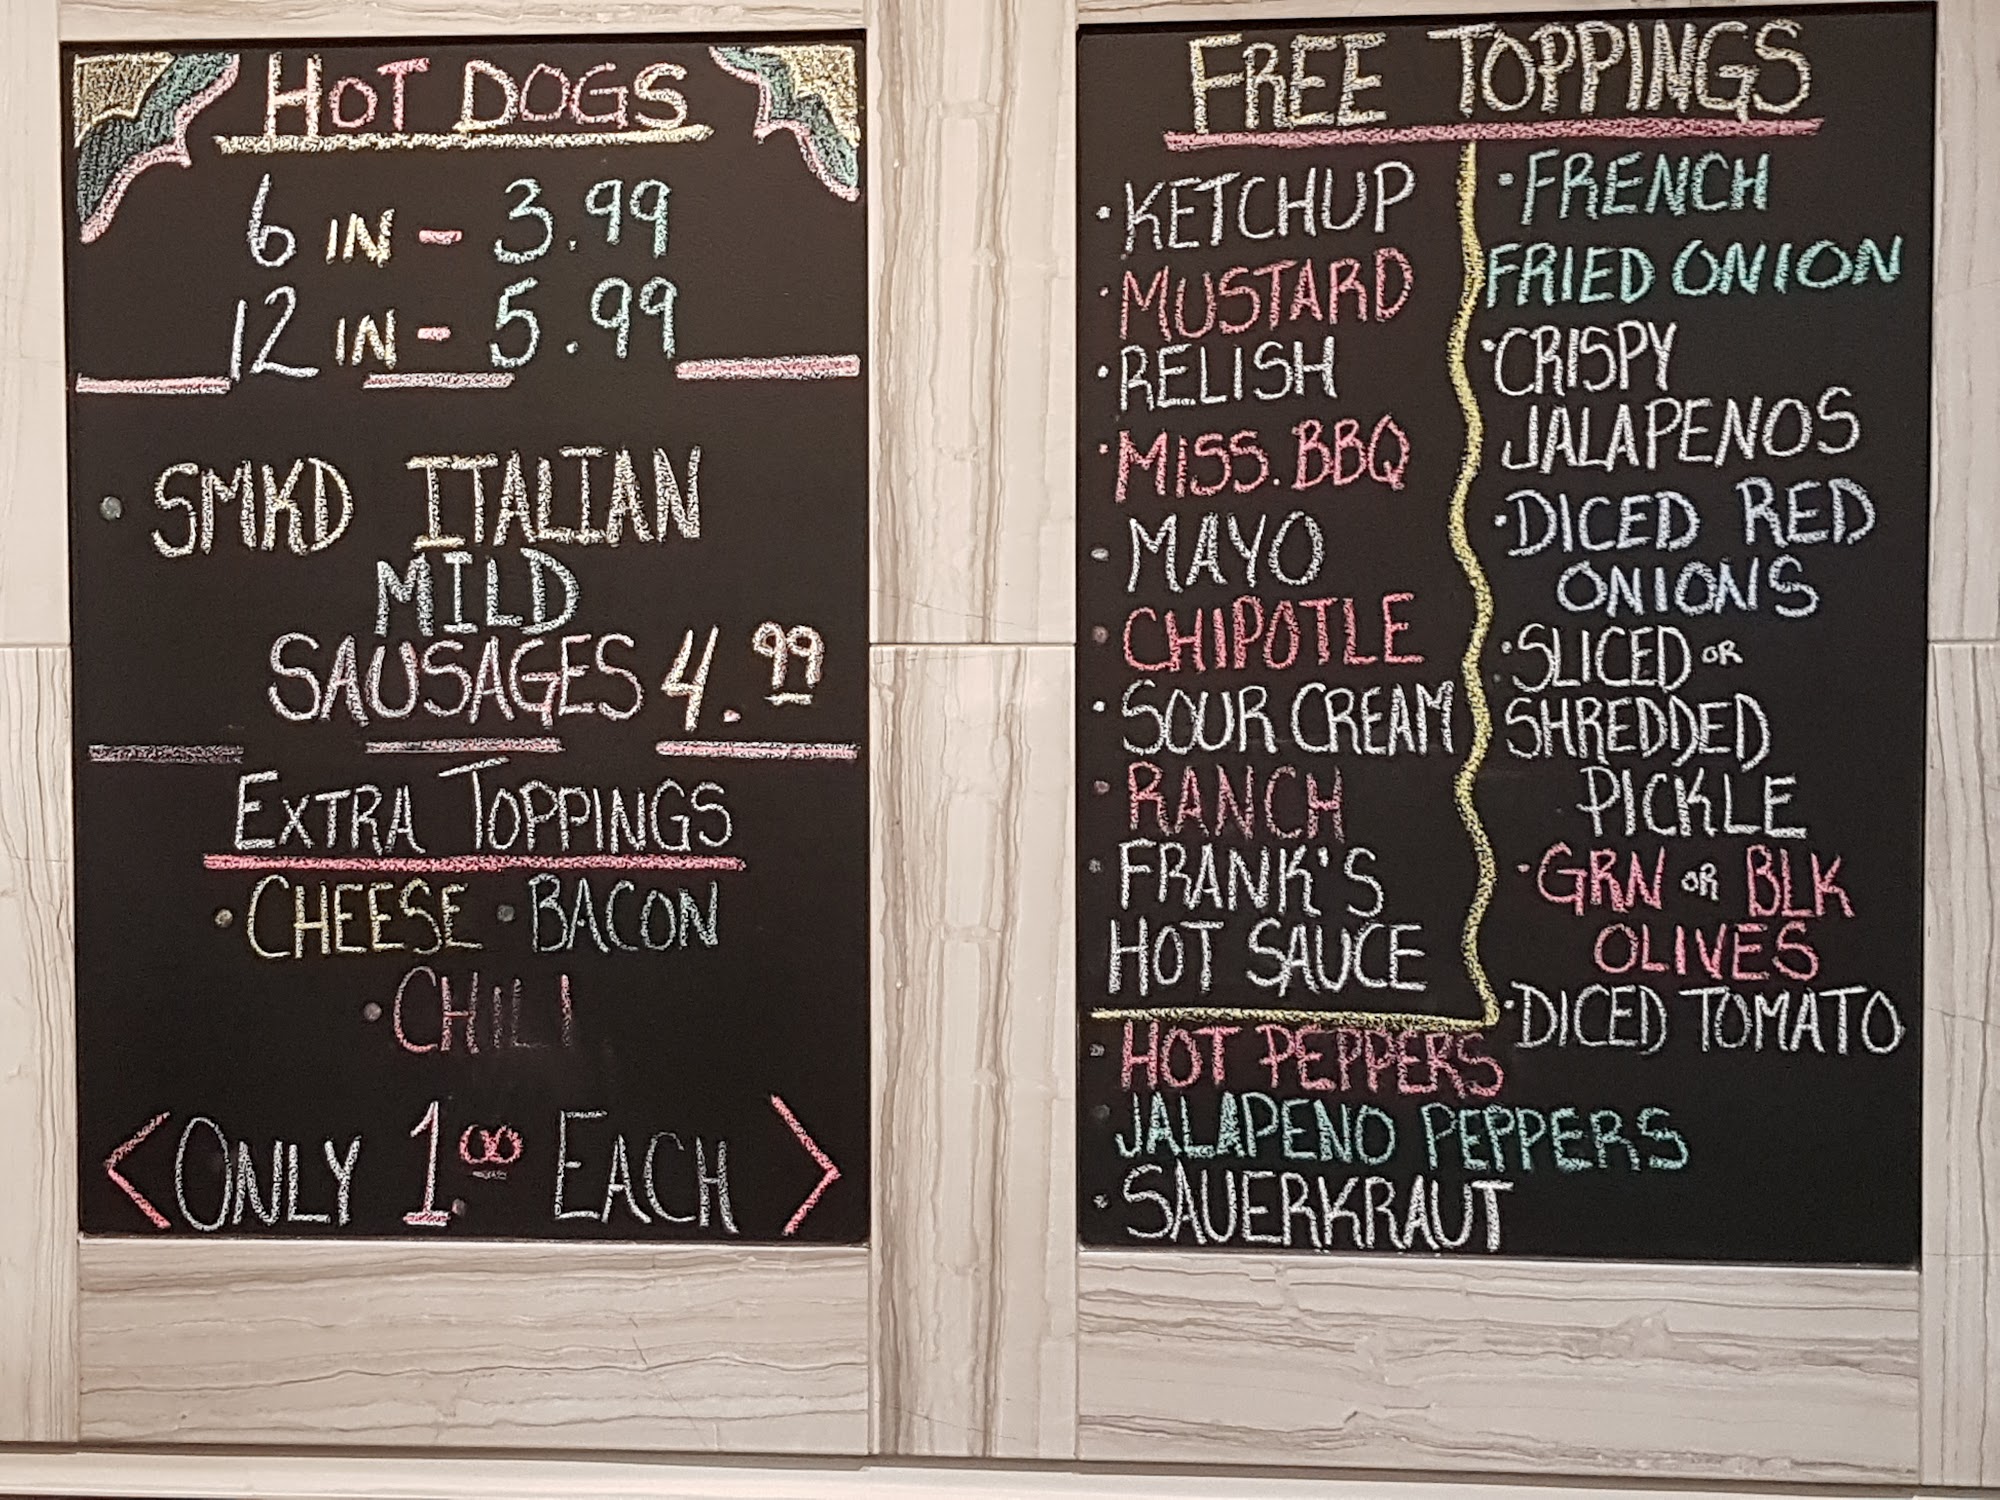 HOT DOGS
6 IN - 3.99
12 IN - 5.99
• SMKD ITALIAN
MILD
SAUSAGES 4.99
EXTRA TOPPINGS
• CHEESE • BACON
• CHILI
<ONLY 1.00 EACH>
FREE TOPPINGS
• KETCHUP
• MUSTARD
• RELISH
• MISS. BBQ
• MAYO
• CHIPOTLE
• SOUR CREAM
• RANCH
• FRANK'S
HOT SAUCE
• HOT PEPPERS
• JALAPENO PEPPERS
• SAUERKRAUT
• FRENCH
FRIED ONION
• CRISPY
JALAPENOS
• DICED RED
ONIONS
• SLICED OR
SHREDDED
PICKLE
• GRN OR BLK
OLIVES
• DICED TOMATO